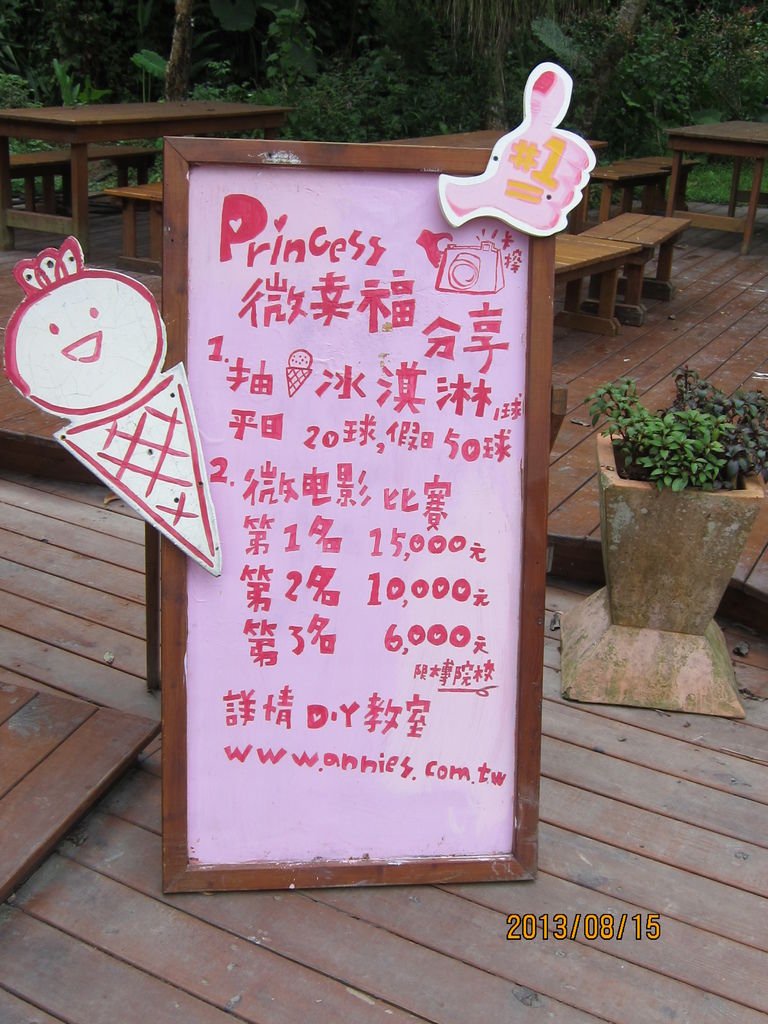 #1
Princess
微幸福
分享
1. 抽 冰淇淋 1球
平日 20球, 假日 50球
2. 微电影 比賽
第1名 15,000元
第2名 10,000元
第3名 6,000元
限大專院校
詳情 DIY教室
www.annies.com.tw
2013/08/15